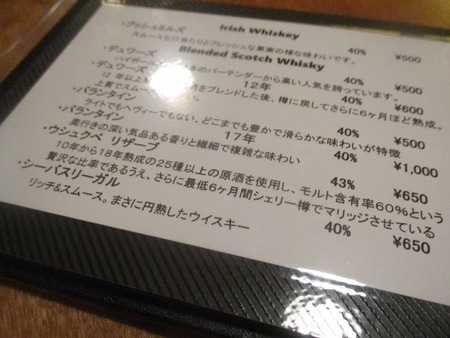 Irish Whiskey
・ブッシュミルズ 40% ¥500
スムースな口当たりとフレッシュな果実の様な味わいです。
Blended Scotch Whisky
・デュワーズ 40% ¥500
ハイボール のバーテンダーから高い人気を誇っています。
・デュワーズ 12年 40% ¥600
12年以上 をブレンドした後、樽に戻してさらに6ヶ月ほど熟成。
上質でスムー
・バランタイン 40% ¥500
ライトでもヘヴィーでもない、どこまでも豊かで滑らかな味わいが特徴
・バランタイン 17年 40% ¥1,000
奥行きの深い気品ある香りと繊細で複雑な味わい
・ウシュクベ リザーブ 43% ¥650
10年から18年熟成の25種以上の原酒を使用し、モルト含有率60%という
贅沢な比率であるうえ、さらに最低6ヶ月間シェリー樽でマリッジさせている
・シーバスリーガル 40% ¥650
リッチ&スムース。まさに円熟したウイスキー